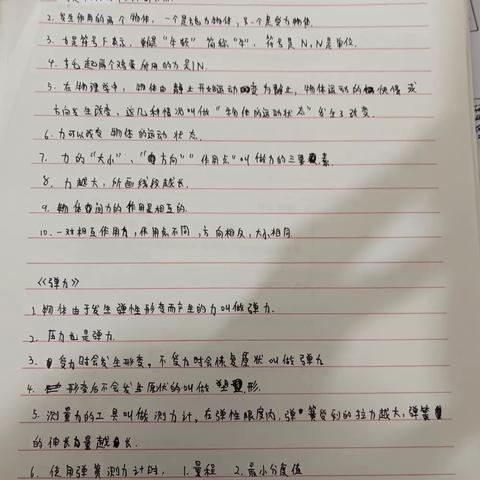 2. 发生作用的两个物体，一个是施力物体，另一个是受力物体.
3. 力是符号F表示，单位"牛顿"简称"牛"，符号是 N，N是单位.
4. 托起两个鸡蛋所用的力是1N.
5. 在物理学中，物体由静止开始运动或变为静止，物体运动的快慢或
方向发生改变，这几种情况叫做"物体的运动状态"发生了改变.
6. 力可以改变物体的运动状态.
7. 力的"大小"、"方向""作用点"叫做力的三要素.
8. 力越大，所画线段越长.
9. 物体间力的作用是相互的.
10. 一对相互作用力，作用点不同，方向相反，大小相同.
《弹力》
1. 物体由于发生弹性形变而产生的力叫做弹力.
2. 压力也是弹力.
3. 受力时会发生形变，不受力时会恢复原状叫做弹力
4. 形变后不会发生原状的叫做塑形.
5. 测量力的工具叫做测力计，在弹性限度内，弹簧受到的拉力越大，弹簧
的伸长量越长.
6. 使用弹簧测力计时， 1.量程 2.最小分度值